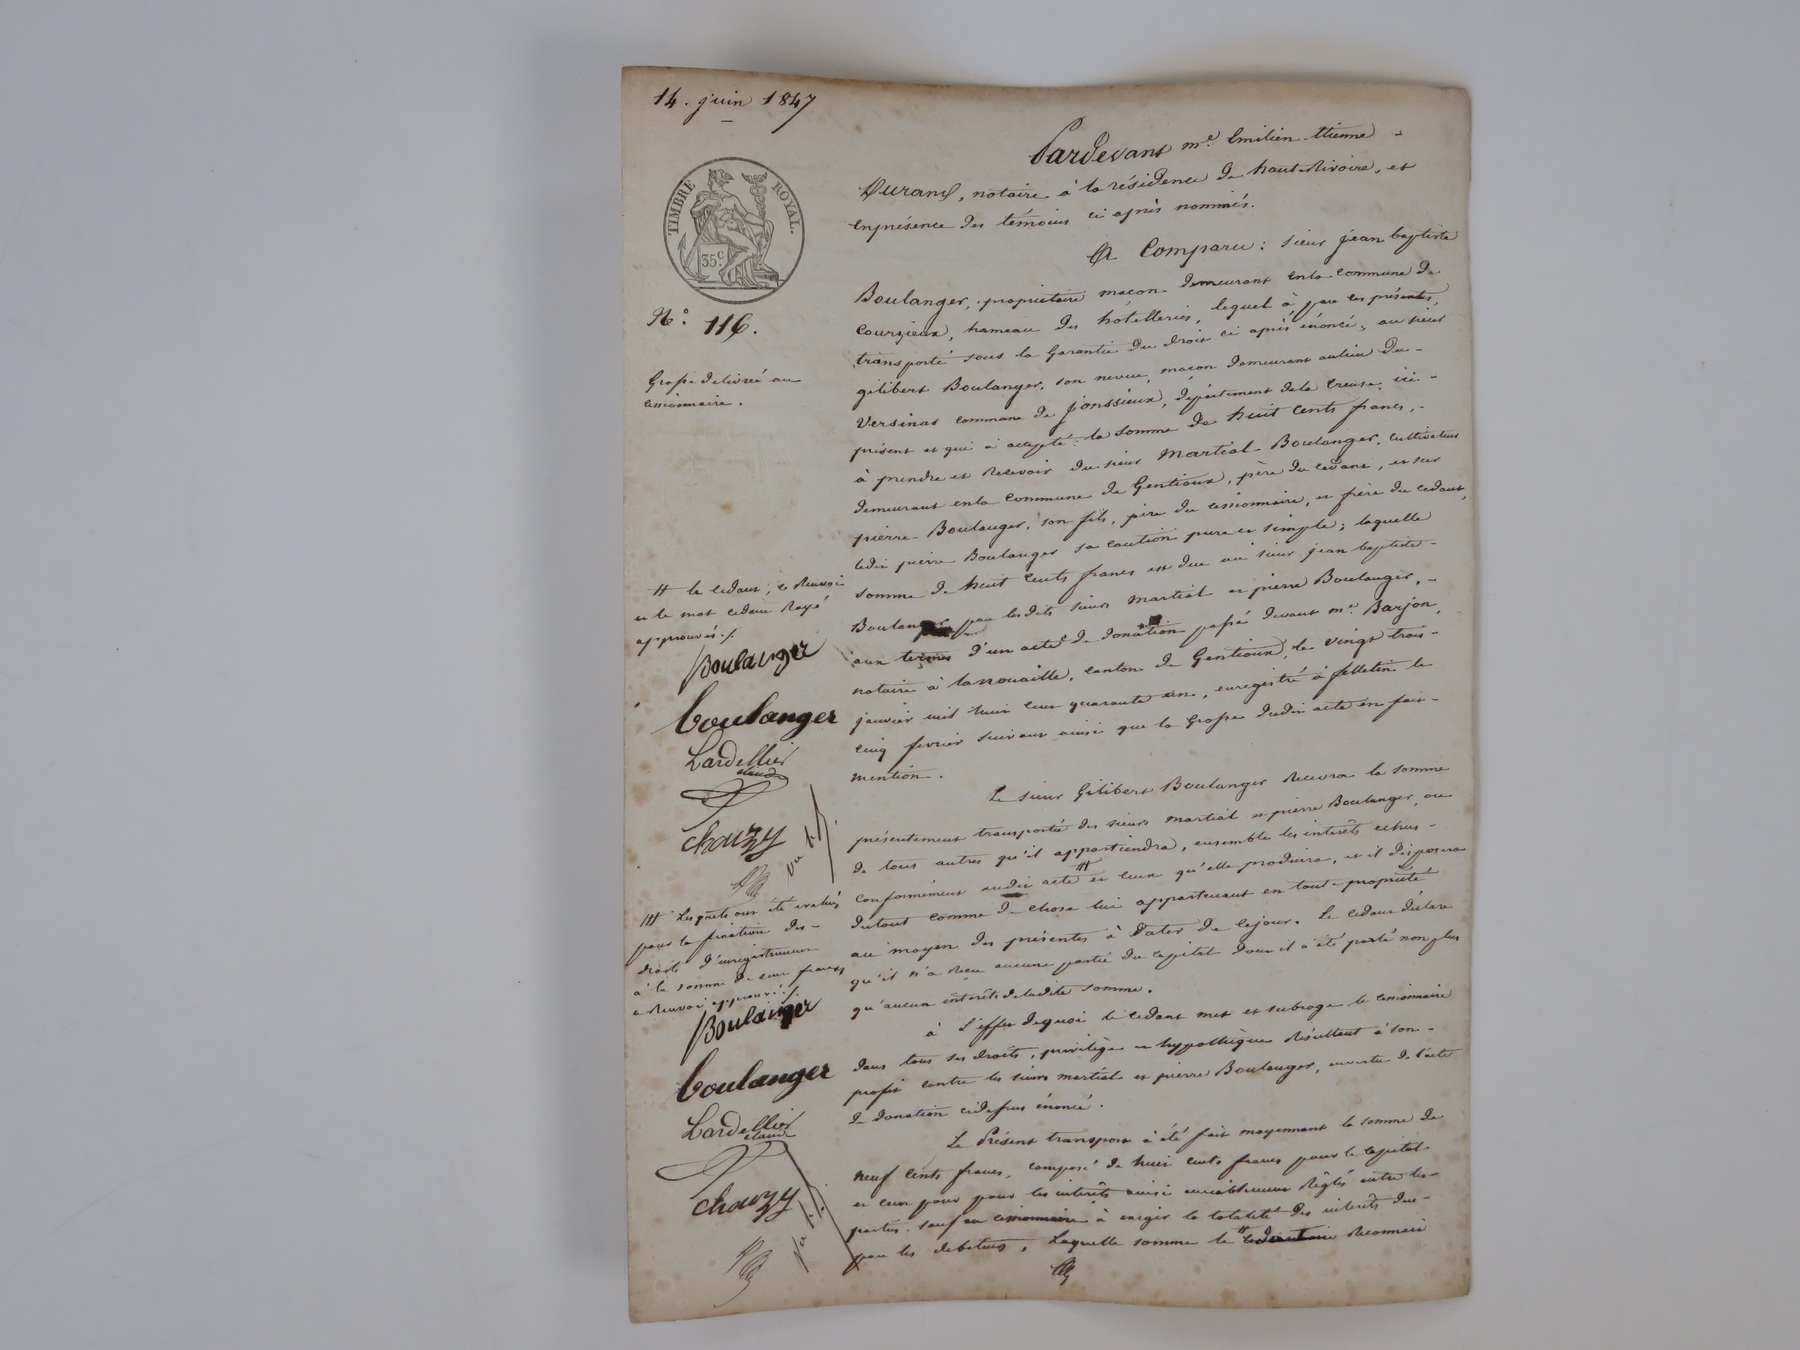 14. juin 1847
TIMBRE ROYAL.
35c.
N.° 116.
Grosse delivrée au
cessionnaire.
Pardevant me. Emilien-Etienne
Durand, notaire à la résidence de haut-Rivoire, et
enprésence des témoins ci après nommés.
A Comparu: sieur jean baptiste
Boulanger, propriétaire macon demeurant enla commune de
courzieux, hameau des hôtelleries, lequel à, par ces présentes,
transporté sous la garantie du droit ci après énoncé, au sieur
gilibert Boulanger, son neveu, macon demeurant aulieu de-
Versinas commune de jonssieux, département dela Creuse, ici-
présent et qui à accepté: la somme de huit cents francs,-
à prendre et recevoir du sieur Martial Boulanger, cultivateur
demeurant enla commune de Gentioux, père du cedant, et sur
pierre Boulanger, son fils, père du cessionnaire, et frère du cedant,
ledit pierre Boulanger sa caution pure et simple; laquelle
somme de huit cents francs est due au sieur jean baptiste-
Boulanger par lesdits sieurs Martial et pierre Boulanger,-
aux termes d'un acte de donation passé devant me. Barjon,
notaire à lanouaille, canton de Gentioux, le vingt trois-
janvier mil huit cent quarante un, enregistré à felletin le
cinq fevrier suivant ainsi que la Grosse dudit acte en fait-
mention.
Le sieur Gilibert Boulanger recevra la somme
présentement transportée des sieurs martial et pierre Boulanger, ou
de tous autres qu'il appartiendra, ensemble les interêts echus-
conformément audit acte # et ceux qu'elle produira, et il disposera
dutout comme de chose lui appartenant en toute propriété
au moyen des présentes à dater de cejour. Le cedant déclare
qu'il n'a recu aucune partie du capital dont il a été parlé non plus
qu'aucun interêts deladite somme.
à l'effet dequoi le cedant met et subroge le cessionnaire
dans tous ses droits, privilège et hypothèque résultant à son-
profit contre les sieurs martial et pierre Boulanger, envertu de l'acte
de donation cidessus énoncé.
Le Présent transport à été fait moyennant la somme de
neuf cents francs, composé de huit cents francs pour le capital
et cent pour les interêts ainsi amiablement réglés entre les-
parties. sauf au cessionnaire à exiger la totalité des interêts dus-
par les debiteurs, Laquelle somme le # reconnait
# le cedant, ce Renvoi
et le mot rayé
approuvés./.
Boulanger
boulanger
Lardellier
claude
chavzy
# Lesquels ont été evalués
pour la fixation des-
droits d'enregistrement
à la somme de cent francs
ce Renvoi approuvé./.
Boulanger
boulanger
Lardellier
claude
chavzy